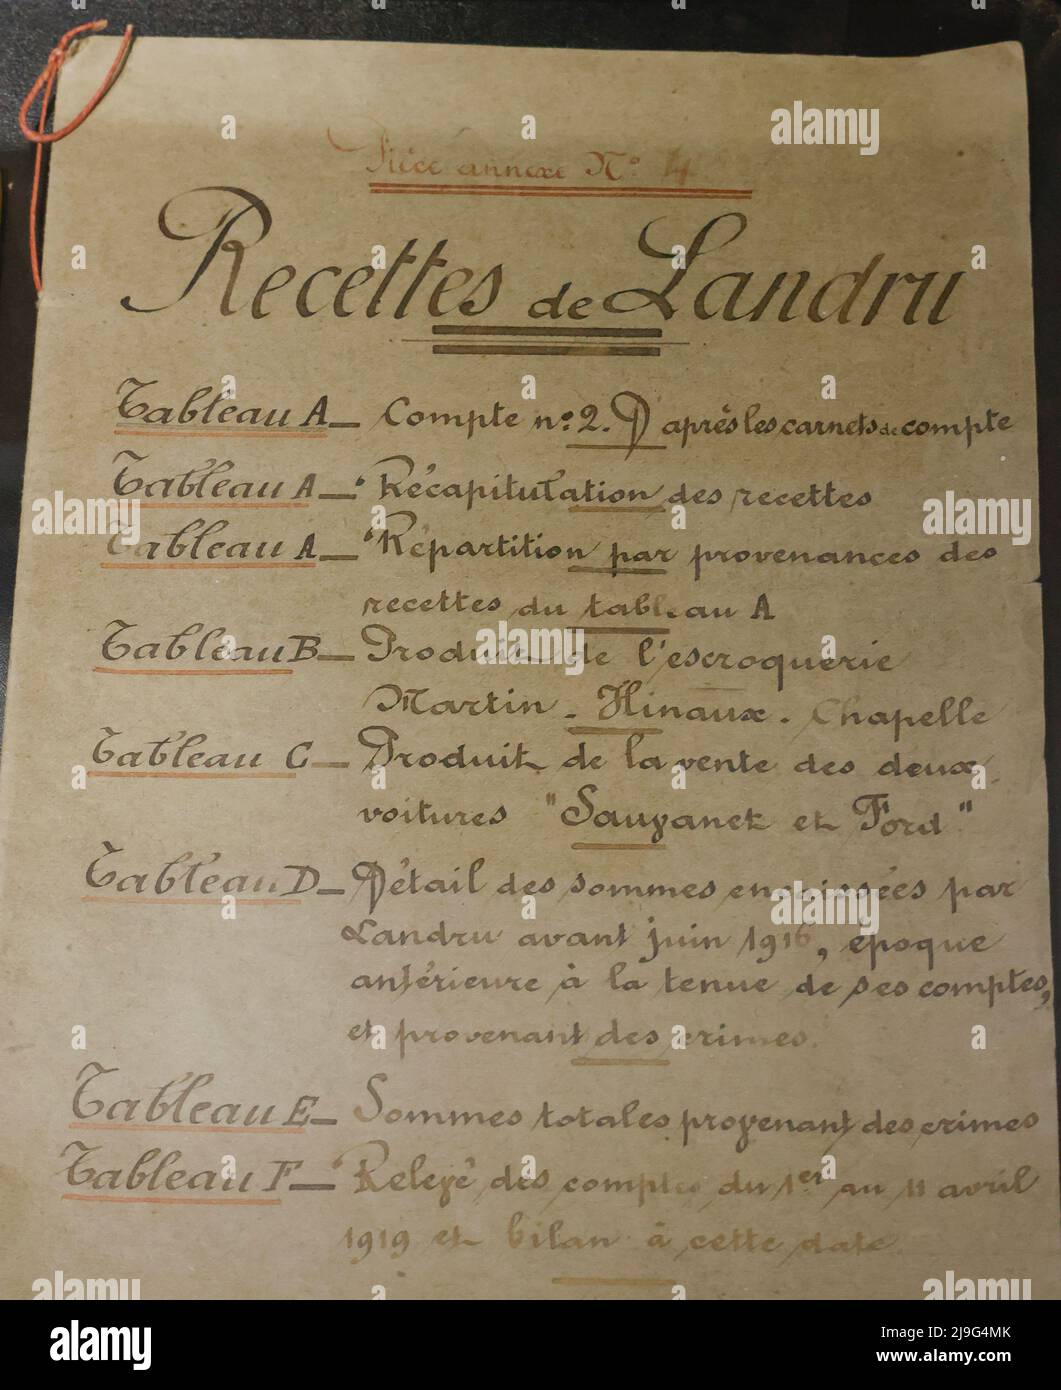 Pièce annexe N° 14
Recettes de Landru
Tableau A — Compte n° 2. D'après les carnets de compte
Tableau A — Récapitulation des recettes
Tableau A — Répartition par provenances des
recettes du tableau A
Tableau B — Produit de l'escroquerie
Martin - Hinaux - Chapelle
Tableau C — Produit de la vente des deux
voitures "Sauzanet et Ford"
Tableau D — Détail des sommes encaissées par
Landru avant juin 1916, époque
antérieure à la tenue de ses comptes,
et provenant des crimes.
Tableau E — Sommes totales provenant des crimes
Tableau F — Relevé des comptes du 1er au 11 avril
1919 et bilan à cette date
alamy
Image ID: 2J9G4MK
www.alamy.com